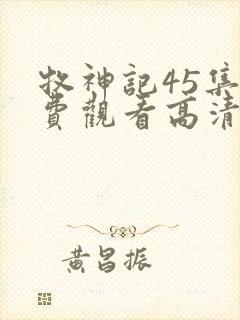 牧神記45集
費觀看高清
黄昌振